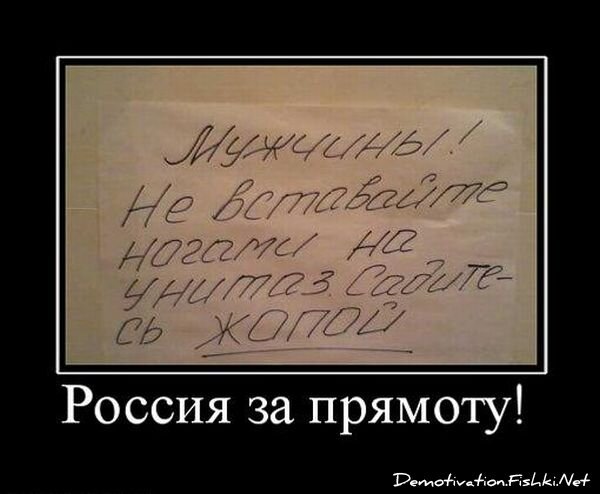 Мужчины!
Не вставайте
ногами на
унитаз. Садите-
сь жопой
Россия за прямоту!
Demotivation.Fishki.Net